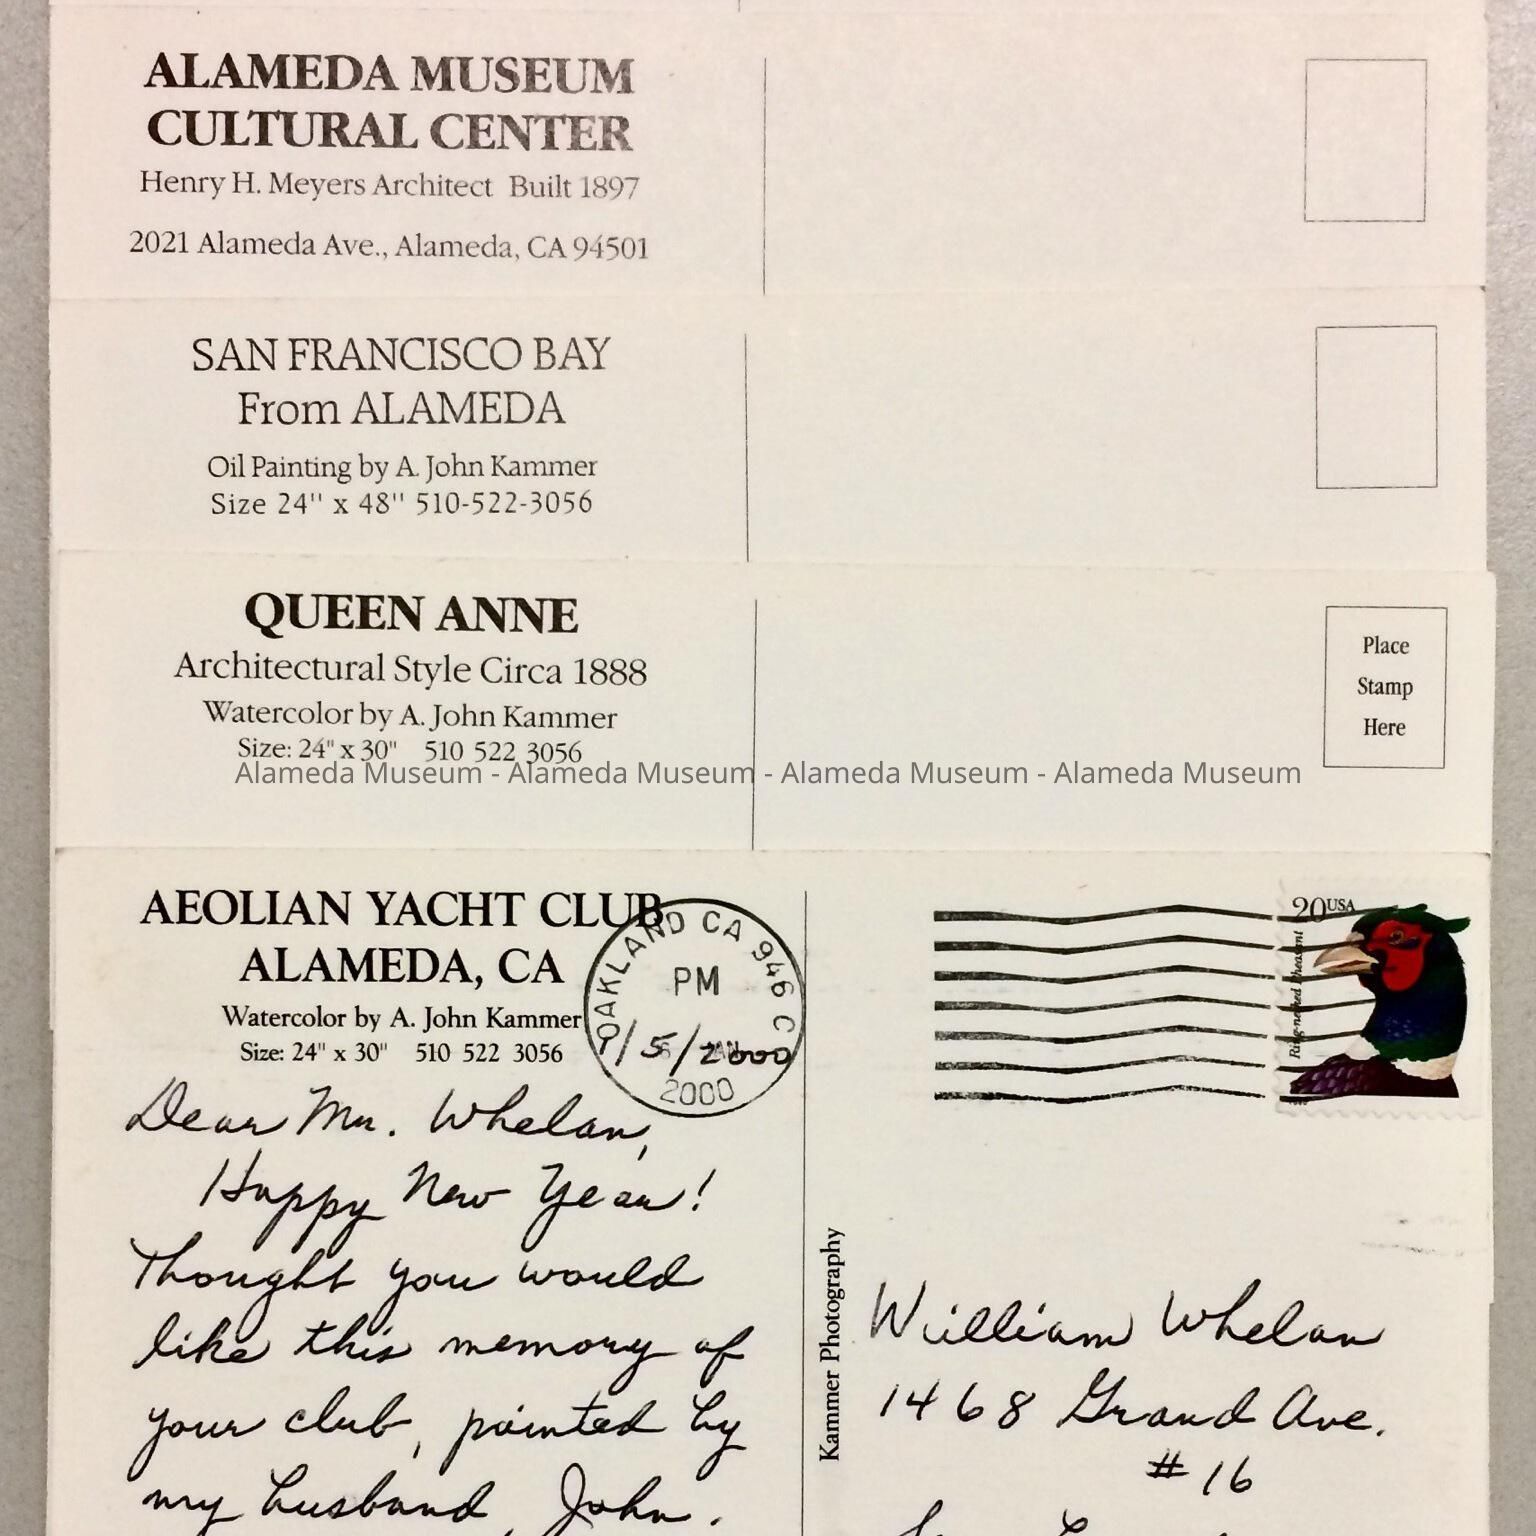 ALAMEDA MUSEUM
CULTURAL CENTER
Henry H. Meyers Architect Built 1897
2021 Alameda Ave., Alameda, CA 94501
SAN FRANCISCO BAY
From ALAMEDA
Oil Painting by A. John Kammer
Size 24" x 48" 510-522-3056
QUEEN ANNE
Architectural Style Circa 1888
Watercolor by A. John Kammer
Size: 24" x 30" 510 522 3056
Place
Stamp
Here
Alameda Museum - Alameda Museum - Alameda Museum - Alameda Museum
AEOLIAN YACHT CLUB
ALAMEDA, CA
Watercolor by A. John Kammer
Size: 24" x 30" 510 522 3056
OAKLAND CA 946 C
PM
1/5/2000
2000
20USA
Ring-necked Pheasant
Dear Mr. Whelan,
Happy New Year!
Thought you would
like this memory of
your club, painted by
my husband, John.
Kammer Photography
William Whelan
1468 Grand Ave.
#16